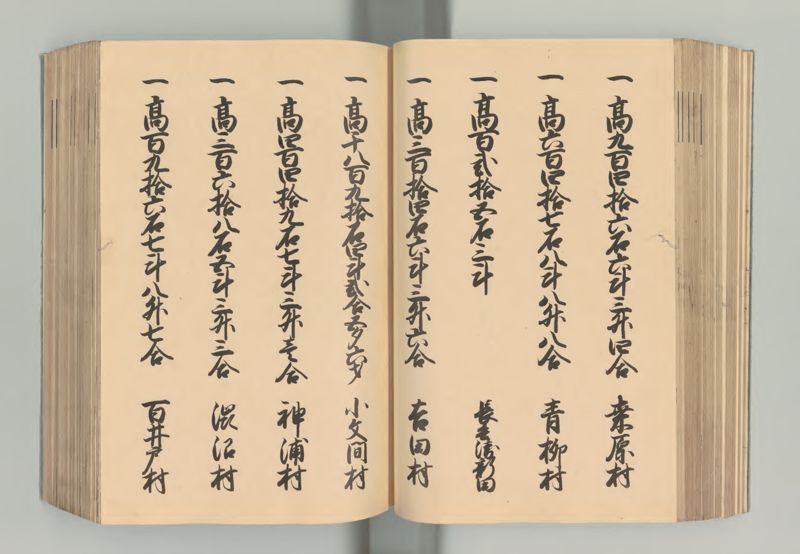 一高九百四拾六石六斗三升四合 桑原村
一高六百四拾七石八斗八升八合 青柳村
一高百弐拾五石三斗 長兵衛新田
一高三百拾四石六斗三升六合 吉田村
一高千八百九拾石四斗弐合五夕六才 小文間村
一高四百四拾九石七斗三升壱合 神浦村
一高三百六拾八石五斗三升三合 沼村
一高百九拾六石七斗八升七合 百井戸村